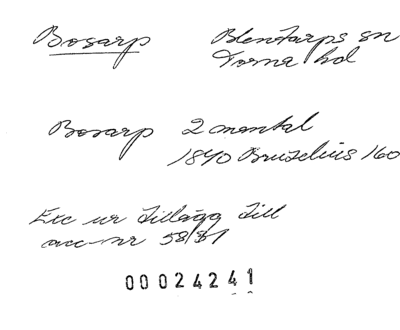 Bosarp Blentarps sn
Torna hd
Bosarp 2 mantal
1840 Bruzelius 160
Exc ur Tillägg till
acc-nr 58/81
00024241